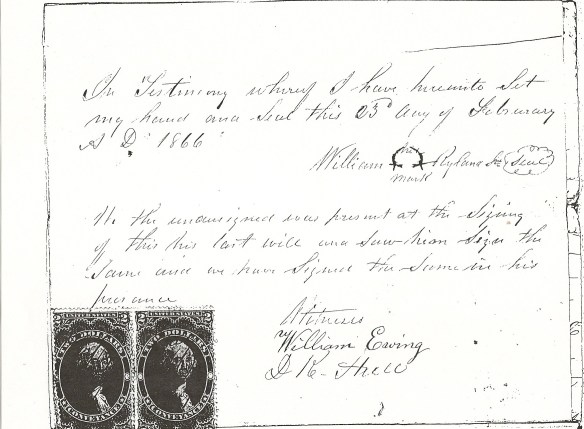 In Testimony whereof I have hereunto Set
my hand and Seal this 23d day of Feburary
A D 1866
his
William Ryland Sr Seal
mark
We the undersigned was present at the Signing
of this his last will and saw him Sign the
Same and we have Signed the Same in his
presance
Witness
William Ewing
D R
UNITED STATES UNITED STATES
TWO DOLLARS TWO DOLLARS
CONVEYANCE CONVEYANCE